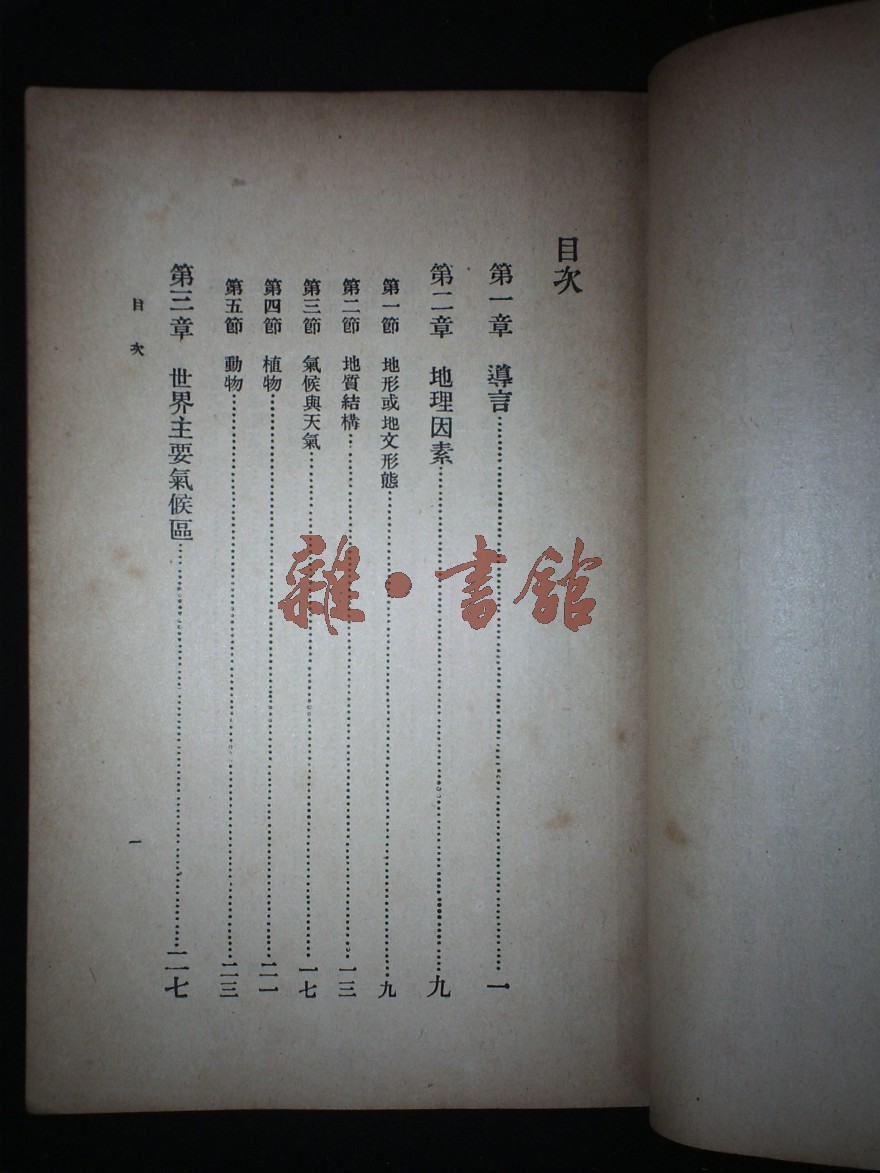 目次
第一章 導言………一
第二章 地理因素………九
第一節 地形或地文形態………九
第二節 地質結構………一三
第三節 氣候與天氣………一七
第四節 植物………二一
第五節 動物………二三
第三章 世界主要氣候區………二七
目次 一
雜·書館